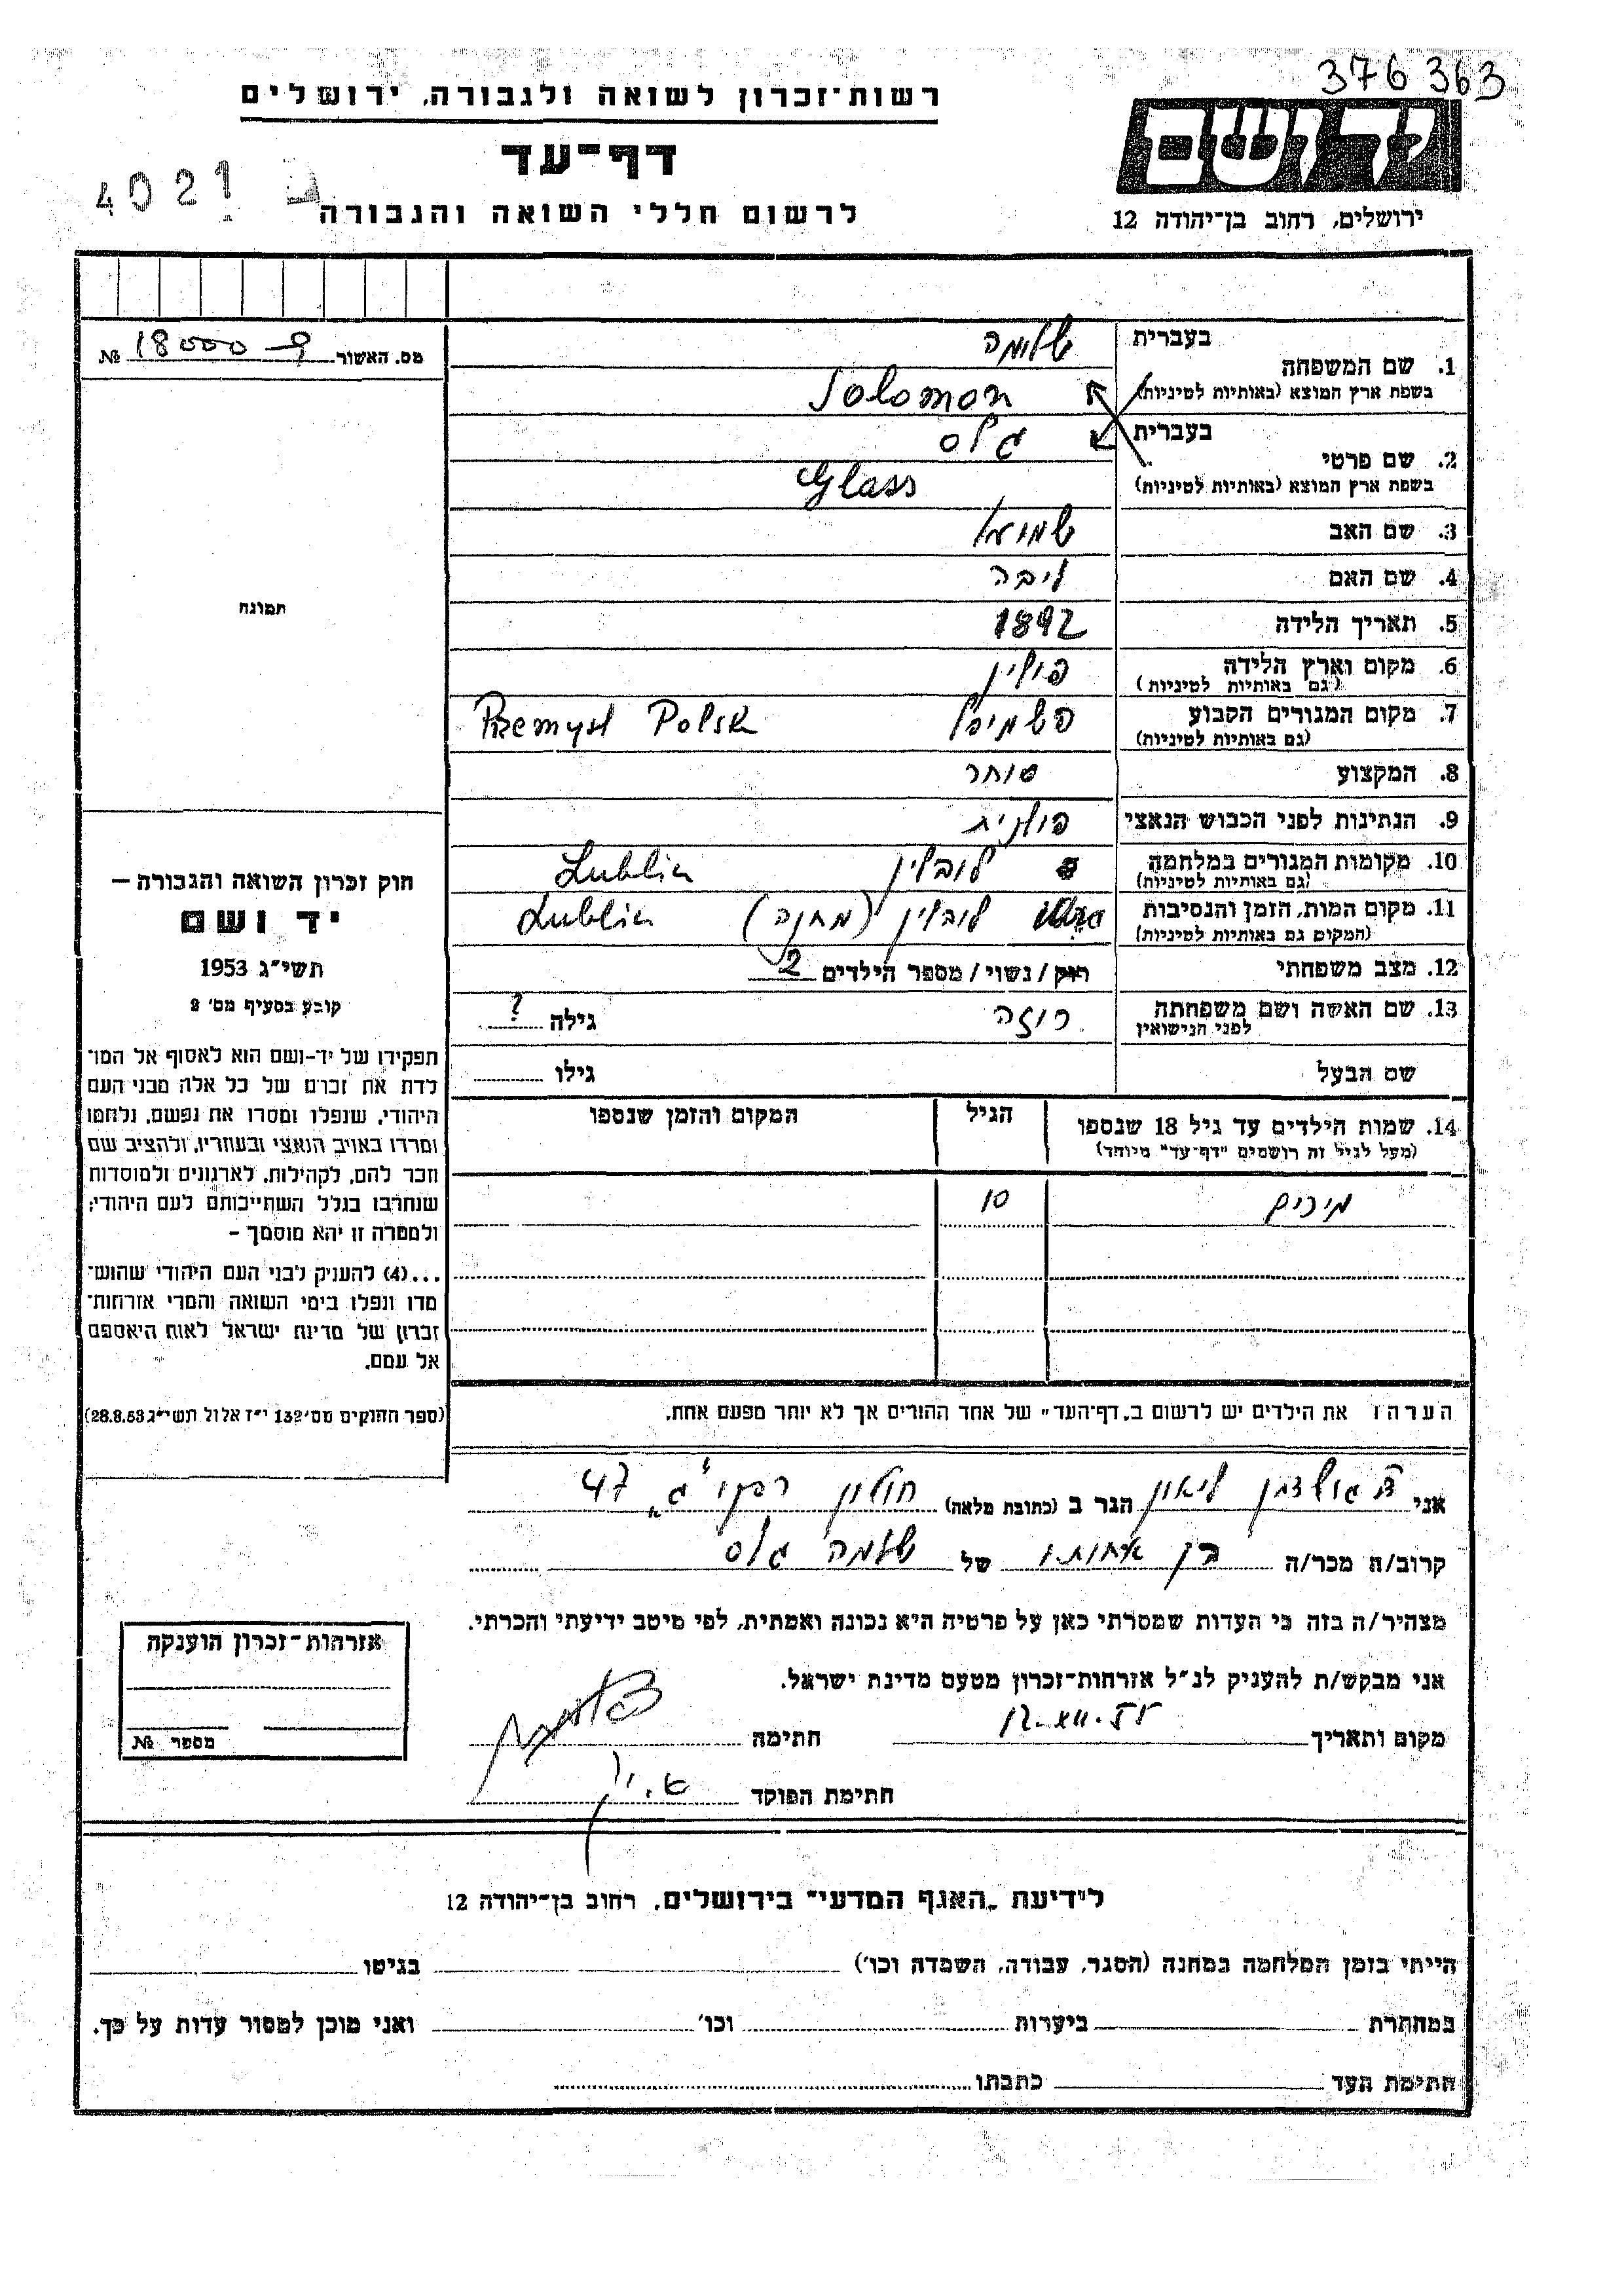 376 363
רשות־זכרון לשואה ולגבורה, ירושלים
יד ושם
דף־עד
4021
לרשום חללי השואה והגבורה
ירושלים, רחוב בן־יהודה 12
בעברית
שלומה
מס. האשור 18000 №
1. שם המשפחה
בשפת ארץ המוצא (באותיות לטיניות) Solomon
בעברית גלס
2. שם פרטי
בשפת ארץ המוצא (באותיות לטיניות) Glass
3. שם האב שמואל
4. שם האם ליבה
תמונה
5. תאריך הלידה 1892
6. מקום וארץ הלידה פולין
(גם באותיות לטיניות)
7. מקום המגורים הקבוע פשמישל Pzemysl Polsk
(גם באותיות לטיניות)
8. המקצוע סוחר
9. הנתינות לפני הכבוש הנאצי פולנית
10. מקומות המגורים במלחמה לובלין Lublin
(גם באותיות לטיניות)
11. מקום המות, הזמן והנסיבות לובלין (מחנה) Lublin
(המקום גם באותיות לטיניות)
12. מצב משפחתי רוק / נשוי / מספר הילדים 2
13. שם האשה ושם משפחתה רוזה גילה ?
לפני הנישואין
שם הבעל גילו
14. שמות הילדים עד גיל 18 שנספו הגיל המקום והזמן שנספו
(מעל לגיל זה רושמים "דף־עד" מיוחד)
מירים 10
חוק זכרון השואה והגבורה —
יד ושם
תשי״ג 1953
קובע בסעיף מס׳ 2
תפקידו של יד-ושם הוא לאסוף אל המו־
לדת את זכרם של כל אלה מבני העם
היהודי, שנפלו ומסרו את נפשם, נלחמו
ומרדו באויב הנאצי ובעוזריו, ולהציב שם
וזכר להם, לקהילות, לארגונים ולמוסדות
שנחרבו בגלל השתייכותם לעם היהודי;
ולמטרה זו יהא מוסמך –
...(4) להעניק לבני העם היהודי שהוש־
מדו ונפלו בימי השואה והמרי אזרחות־
זכרון של מדינת ישראל לאות היאספם
אל עמם.
(ספר החוקים מס׳ 132 י״ז אלול תשי״ג 28.8.53)
הערה: את הילדים יש לרשום ב„דף־העד" של אחד ההורים אך לא יותר מפעם אחת.
אני גולדמן ליאון הגר ב (כתובת מלאה) חולון 47
קרוב/ה מכר/ה בן אחותו של שלמה גלס
מצהיר/ה בזה כי העדות שמסרתי כאן על פרטיה היא נכונה ואמתית, לפי מיטב ידיעתי והכרתי.
אני מבקש/ת להעניק לנ״ל אזרחות־זכרון מטעם מדינת ישראל.
מקום ותאריך חתימה
חתימת הפוקד
אזרחות־זכרון הוענקה
מספר №
לידיעת „האגף המדעי" בירושלים, רחוב בן־יהודה 12
הייתי בזמן המלחמה במחנה (הסגר, עבודה, השמדה וכו׳) בגיטו
במחתרת ביערות וכו׳ ואני מוכן למסור עדות על כך.
חתימת העד כתבתו